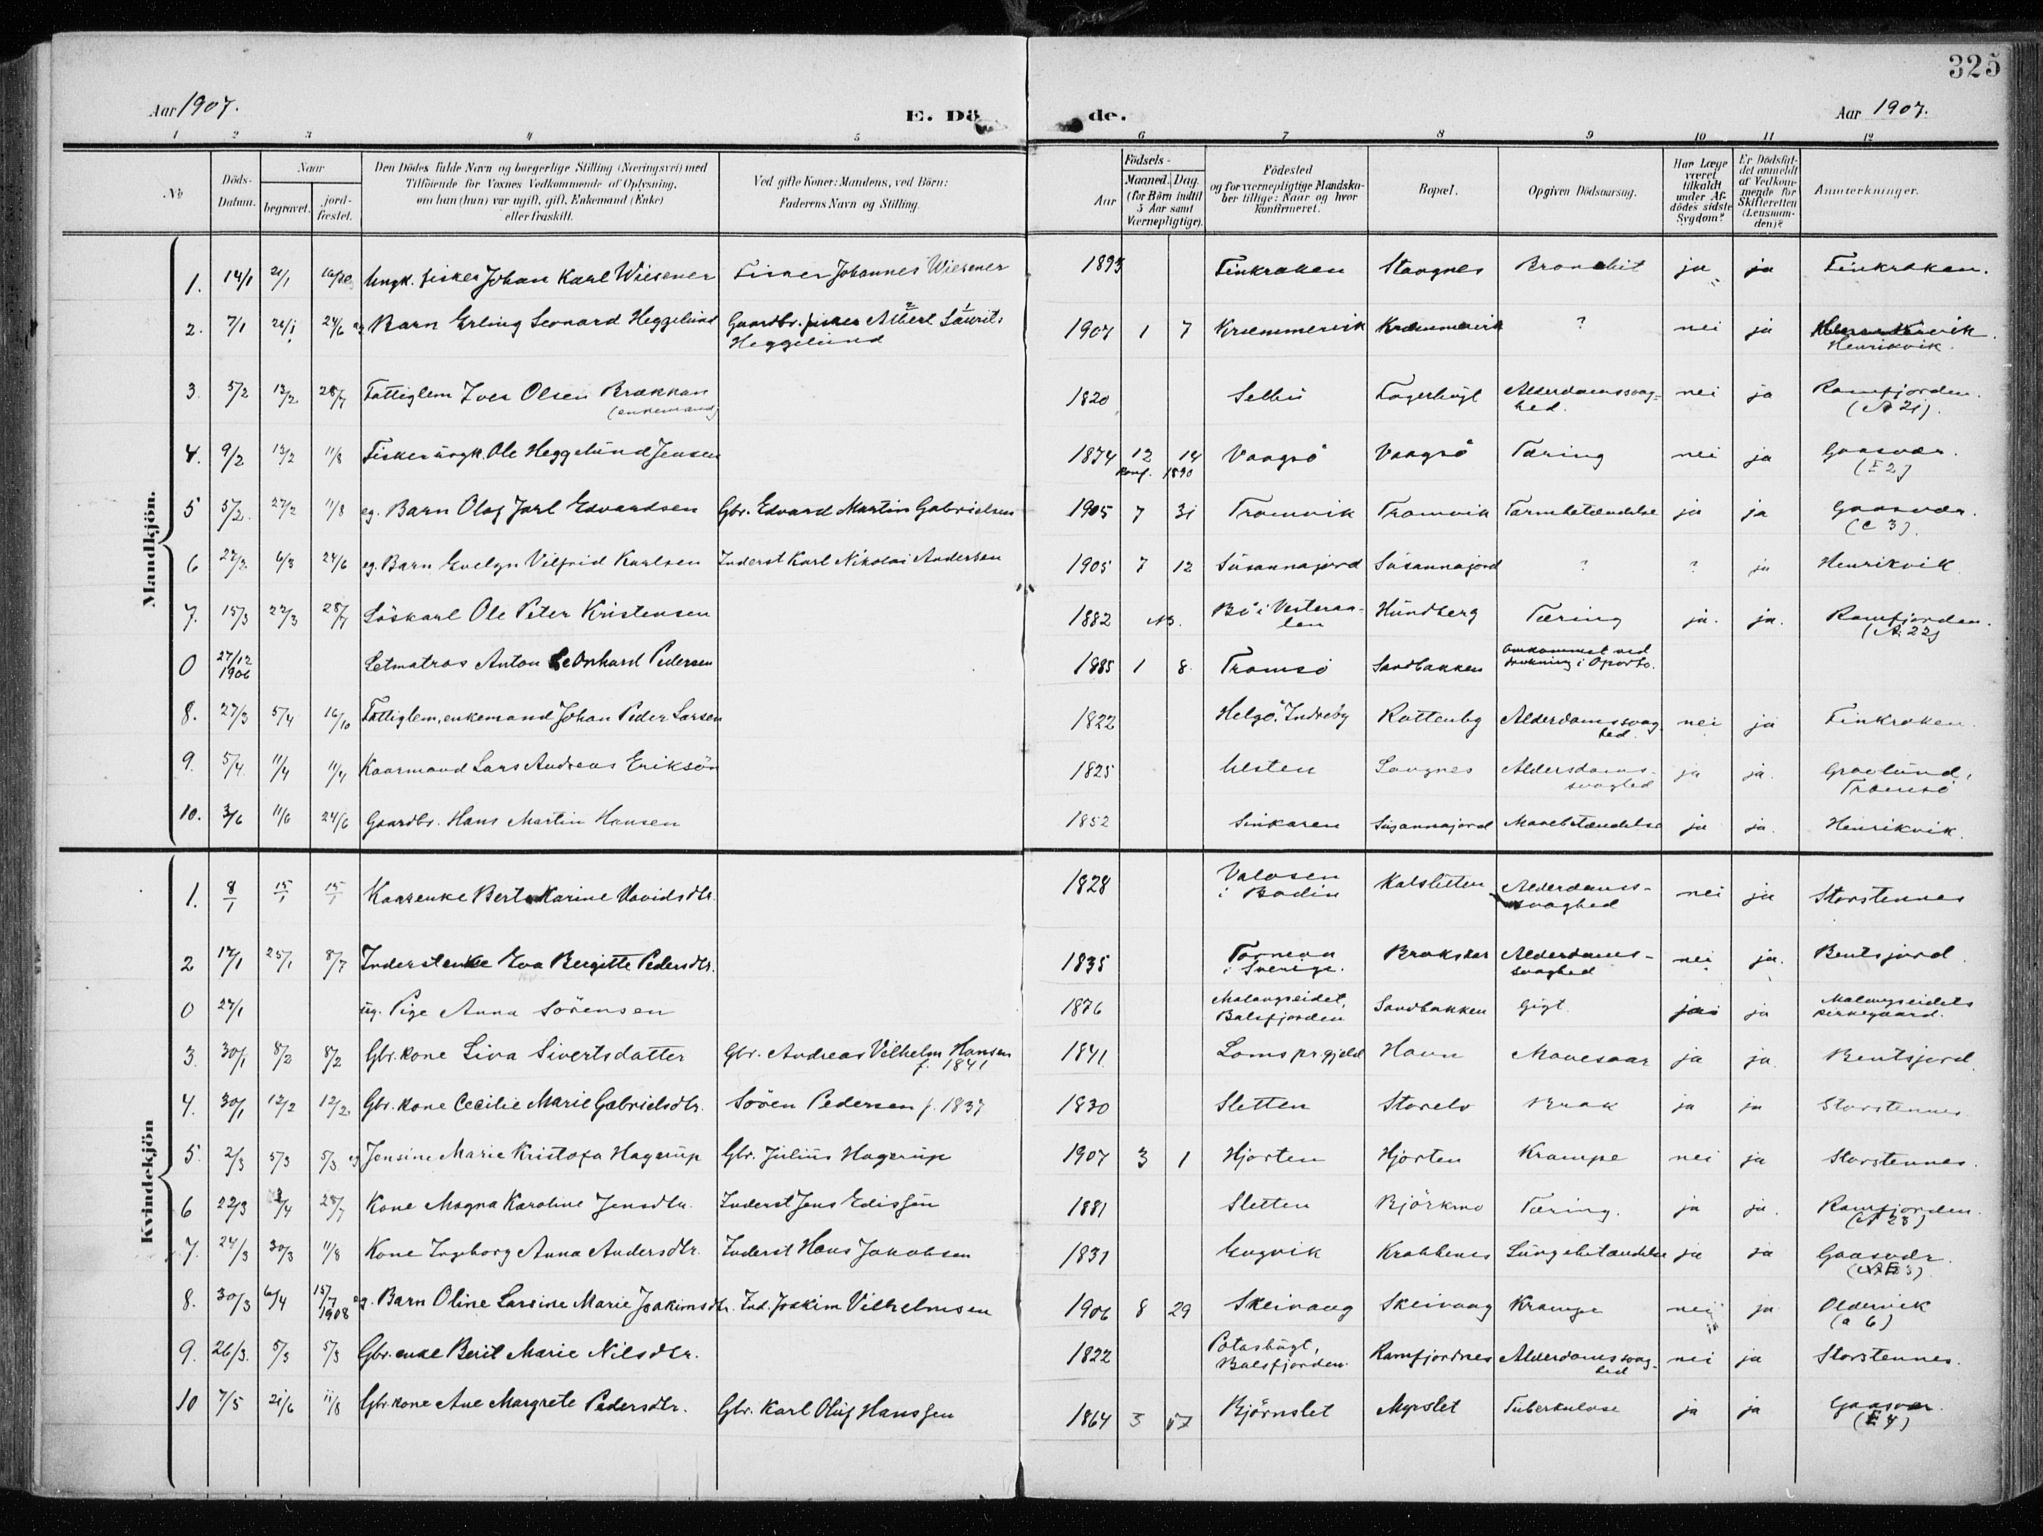 325
Aar 1907. E. Dö de. Aar 1907.
1 2 3 4 5 6 7 8 9 10 11 12
No Döds-Datum. Naar begravet. jord-fæstet. Den Dödes fulde Navn og borgerlige Stilling (Næringsvei) med Tilföiende for Voxnes Vedkommende af Oplysning, om han (hun) var ugift, gift, Enkemand (Enke) eller fraskilt. Ved gifte Koner: Mandens, ved Börn: Faderens Navn og Stilling. Födsels- Aar Maaned. Dag. (for Börn indtil 5 Aar samt Værnepligtige). Födested og for værnepligtige Mandskaber tillige: Naar og hvor konfirmeret. Bopæl. Opgiven Dödsaarsag. Har Læge været tilkaldt under Afdödes sidste Sygdom? Er Dödsfaldet anmeldt af Vedkommende for Skifteretten (Lensmanden)? Anmerkninger.
Mandkjön.
1. 14/1 21/1 Ungk. fisker Johan Karl Wiesener Fisker Johannes Wiesener 1893 Finkroken Stavgnes ja ja Finkroken.
2. 7/1 24/6 Barn Erling Leonard Heggelund Gaardbr. fisker Albert Laurits Heggelund 1907 1 7 Kræmmervik Kræmmervik ? nei ja Henrikvik.
3 5/2 13/2 28/7 Fattiglem Iver Olsen Brækkan (enkemand) 1820 Selbu Fagerhügt Alderdomssvaghed. nei ja Ramfjorden. (A 21).
4. 9/2 13/2 11/8 Fisker ungk. Ole Heggelund Jensen 1874 12 14 Konf. 1890 Vaagsö Vaagsö Tæring nei ja Gaasvær. (E 2)
5 5/2. 27/2 11/8 eg. Barn Olaf Jarl Edvardsen Gbr. Edvard Martin Gabrielsen 1905 7 31 Tromvik Tromvik Tarmbetændelse ja ja Gaasvær. (C 3).
6 27/2 6/3 24/6 eg. Barn Evelyn Vilfrid Karlsen Inderst Karl Nikolai Andersen 1905 7 12 Susannajord Susannajord ? ? ja Henrikvik
7. 15/3 22/3 28/7 Löskarl Ole Peter Kristensen 1882 Bö i Vesteraalen Hundberg Tæring ja. ja. Ramfjorden. (A. 22)
0 27/12 1906 Letmatros Anton Leonhard Pedersen 1885 1 8. Tromsö Sandbakken Omkommet ved drukning i Oporto.
8. 27/3 5/4 16/10 Fattiglem, enkemand Johan Peder Larsen 1822 Helgö, Indreby Rottenby Alderdomssvaghed. nei ja Finkroken.
9. 5/4 11/4 11/4 Kaarmand Lars Andreas Eriksön 1825 Ulsten Langnes Aldersdomssvaghed ja ja. Grönlund, Tromsö
10. 3/6 11/6 24/6 Gaardbr. Hans Martin Hansen 1852 Sinkaren Susannajord Mavebetændelse ja ja. Henrikvik.
Kvindekjön
1. 8/1 15/1 15/1 Kaarenke Berta Karine Davidsdtr. 1828 Valosen i Bodin Kalsletten Alderdomssvaghed nei ja Storstennes
2 17/1 25/1 8/7 Inderstenke Eva Bergitte Pedersdtr. 1835 Tornea i Sverige. Alderdomssvaghed nei ja. Bentsjord.
0 27/1 ug. Pige Anna Sörensen 1876 Malangseidet, Balsfjorden Sandbakken Gigt. ja ja Malangseidets kirkegaard.
3. 30/1 8/2 8/2 Gbr. kone Liva Sivertsdatter Gbr. Andreas Vilhelm Hansen f. 1841 1841. Loms prgjeld Havn Mavesaar ja ja. Bentsjord
4. 30/1 12/2 12/2. Gbr. kone Cecilie Marie Gabrielsdtr. Sören Pedersen f. 1837 1830 Sletten Storelv Brok ja ja Storstennes
5. 2/3 5/3 5/3 eg Jensine Marie Kristofa Hagerup Gbr. Julius Hagerup 1907 3 1 Hjorten Hjorten Krampe nei ja Storstennes.
6 22/3 /4 28/7 Kone Magna Karoline Jensdtr. Inderst Jens Edissen 1881 Sletten Björkmo Tæring. ja ja. Ramfjorden. (A 23)
7. 24/3 30/3 11/8 Kone Ingeborg Anna Andersdtr. Inderst Hans Jakobsen 1831 Engvik Krabbenes Lungebetændelse ja ja Gaasvær.
8. 30/3 6/4 15/7 1908 eg. Barn Oline Larsine Marie Joakimsdtr. Ind. Joakim Vilhelmsen 1906 8 29 Skeivaag Skeivaag Krampe nei ja Oldervik (a 6)
9. 26/3. 5/3 5/3 Gbr. enke Berit Marie Nilsdtr. 1822 Potashugt, Balsfjorden. Ramfjordnes Alderdomssvaghed nei ja Storstennes.
10 7/5 21/6 11/8 Gbr. kone Ane Margrete Pedersdtr. Gbr. Karl Oluf Hanssen 1864 3 17 Björnslet Myrslet Tuberkulose ja ja Gaasvær. (E 4)